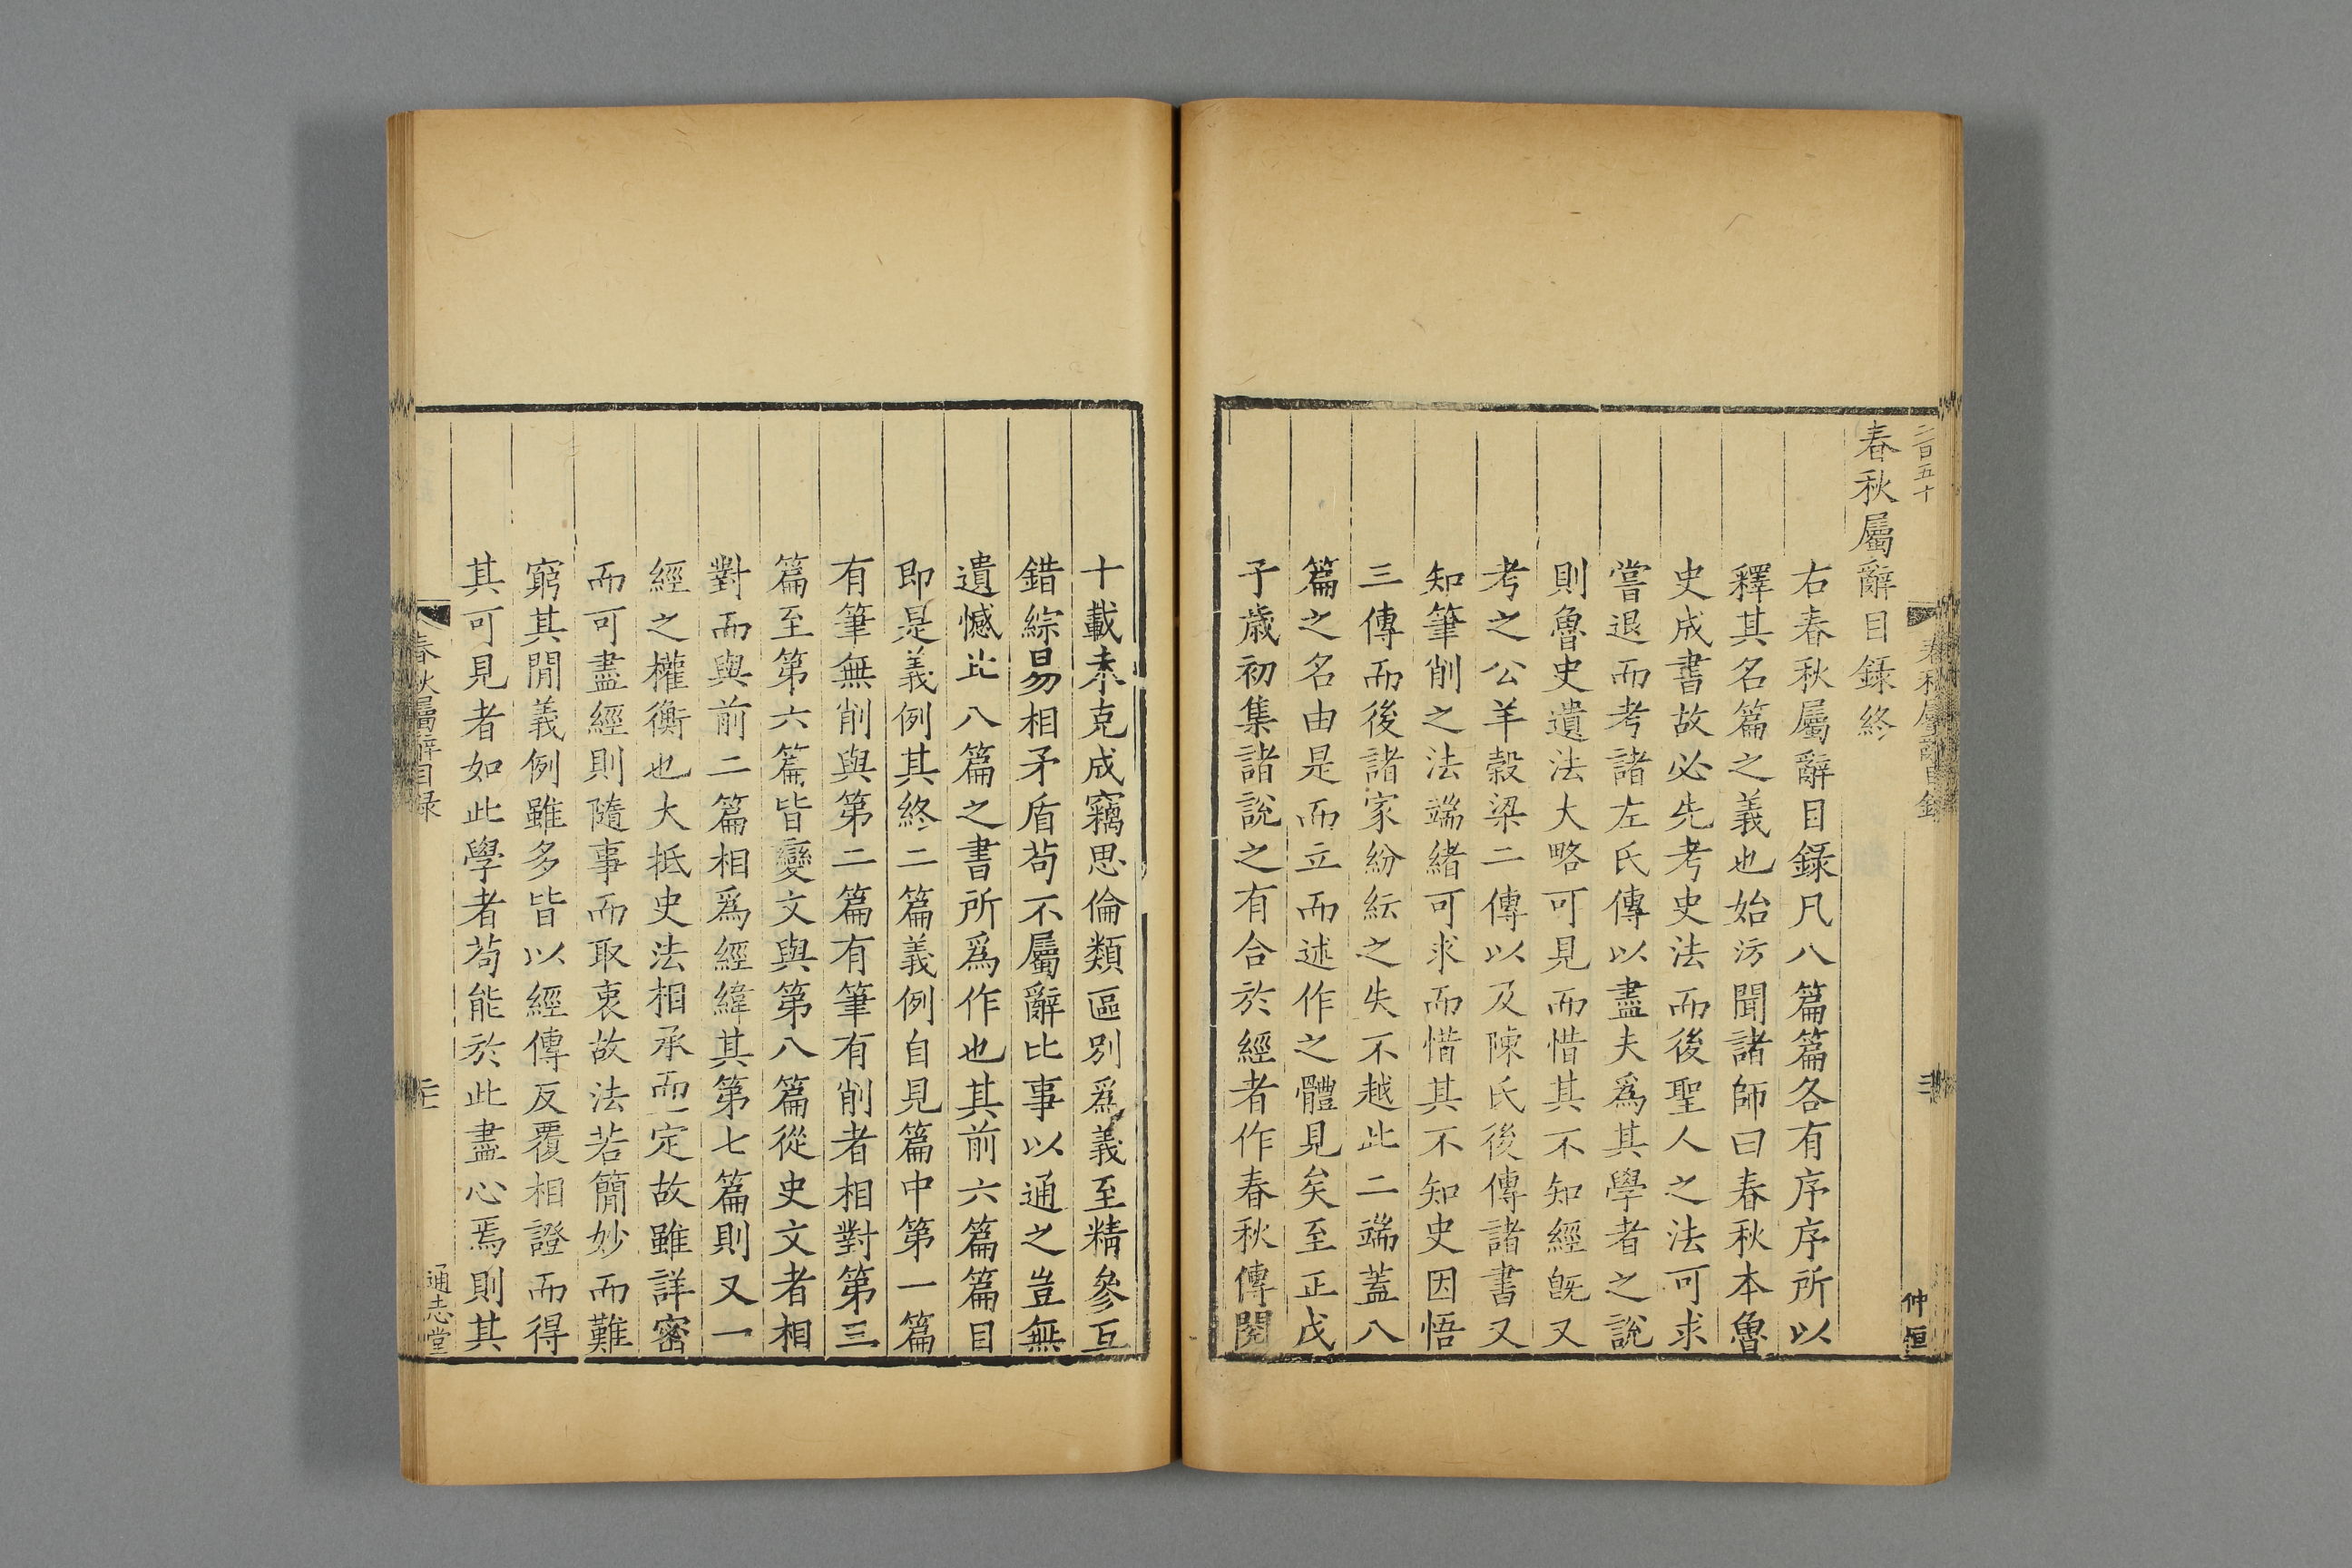 二百五十
春秋屬辭目錄
仲恒
春秋屬辭目錄終
右春秋屬辭目錄凡八篇篇各有序序所以
釋其名篇之義也始汸聞諸師曰春秋本魯
史成書故必先考史法而後聖人之法可求
嘗退而考諸左氏傳以盡夫爲其學者之說
則魯史遺法大略可見而惜其不知經旣又
考之公羊榖梁二傳以及陳氏後傳諸書又
知筆削之法端緒可求而惜其不知史因悟
三傳而後諸家紛紜之失不越此二端蓋八
篇之名由是而立而述作之體見矣至正戊
子歲初集諸說之有合於經者作春秋傳閱
十載未克成竊思倫類區別爲義至精參互
錯綜易相矛盾茍不屬辭比事以通之豈無
遺憾此八篇之書所爲作也其前六篇篇目
即是義例其終二篇義例自見篇中第一篇
有筆無削與第二篇有筆有削者相對第三
篇至第六篇皆變文與第八篇從史文者相
對而與前二篇相爲經緯其第七篇則又一
經之權衡也大抵史法相承而一定故雖詳密
而可盡經則隨事而取衷故法若簡妙而難
窮其閒義例雖多皆以經傳反覆相證而得
其可見者如此學者茍能於此盡心焉則其
春秋屬辭目錄
通志堂